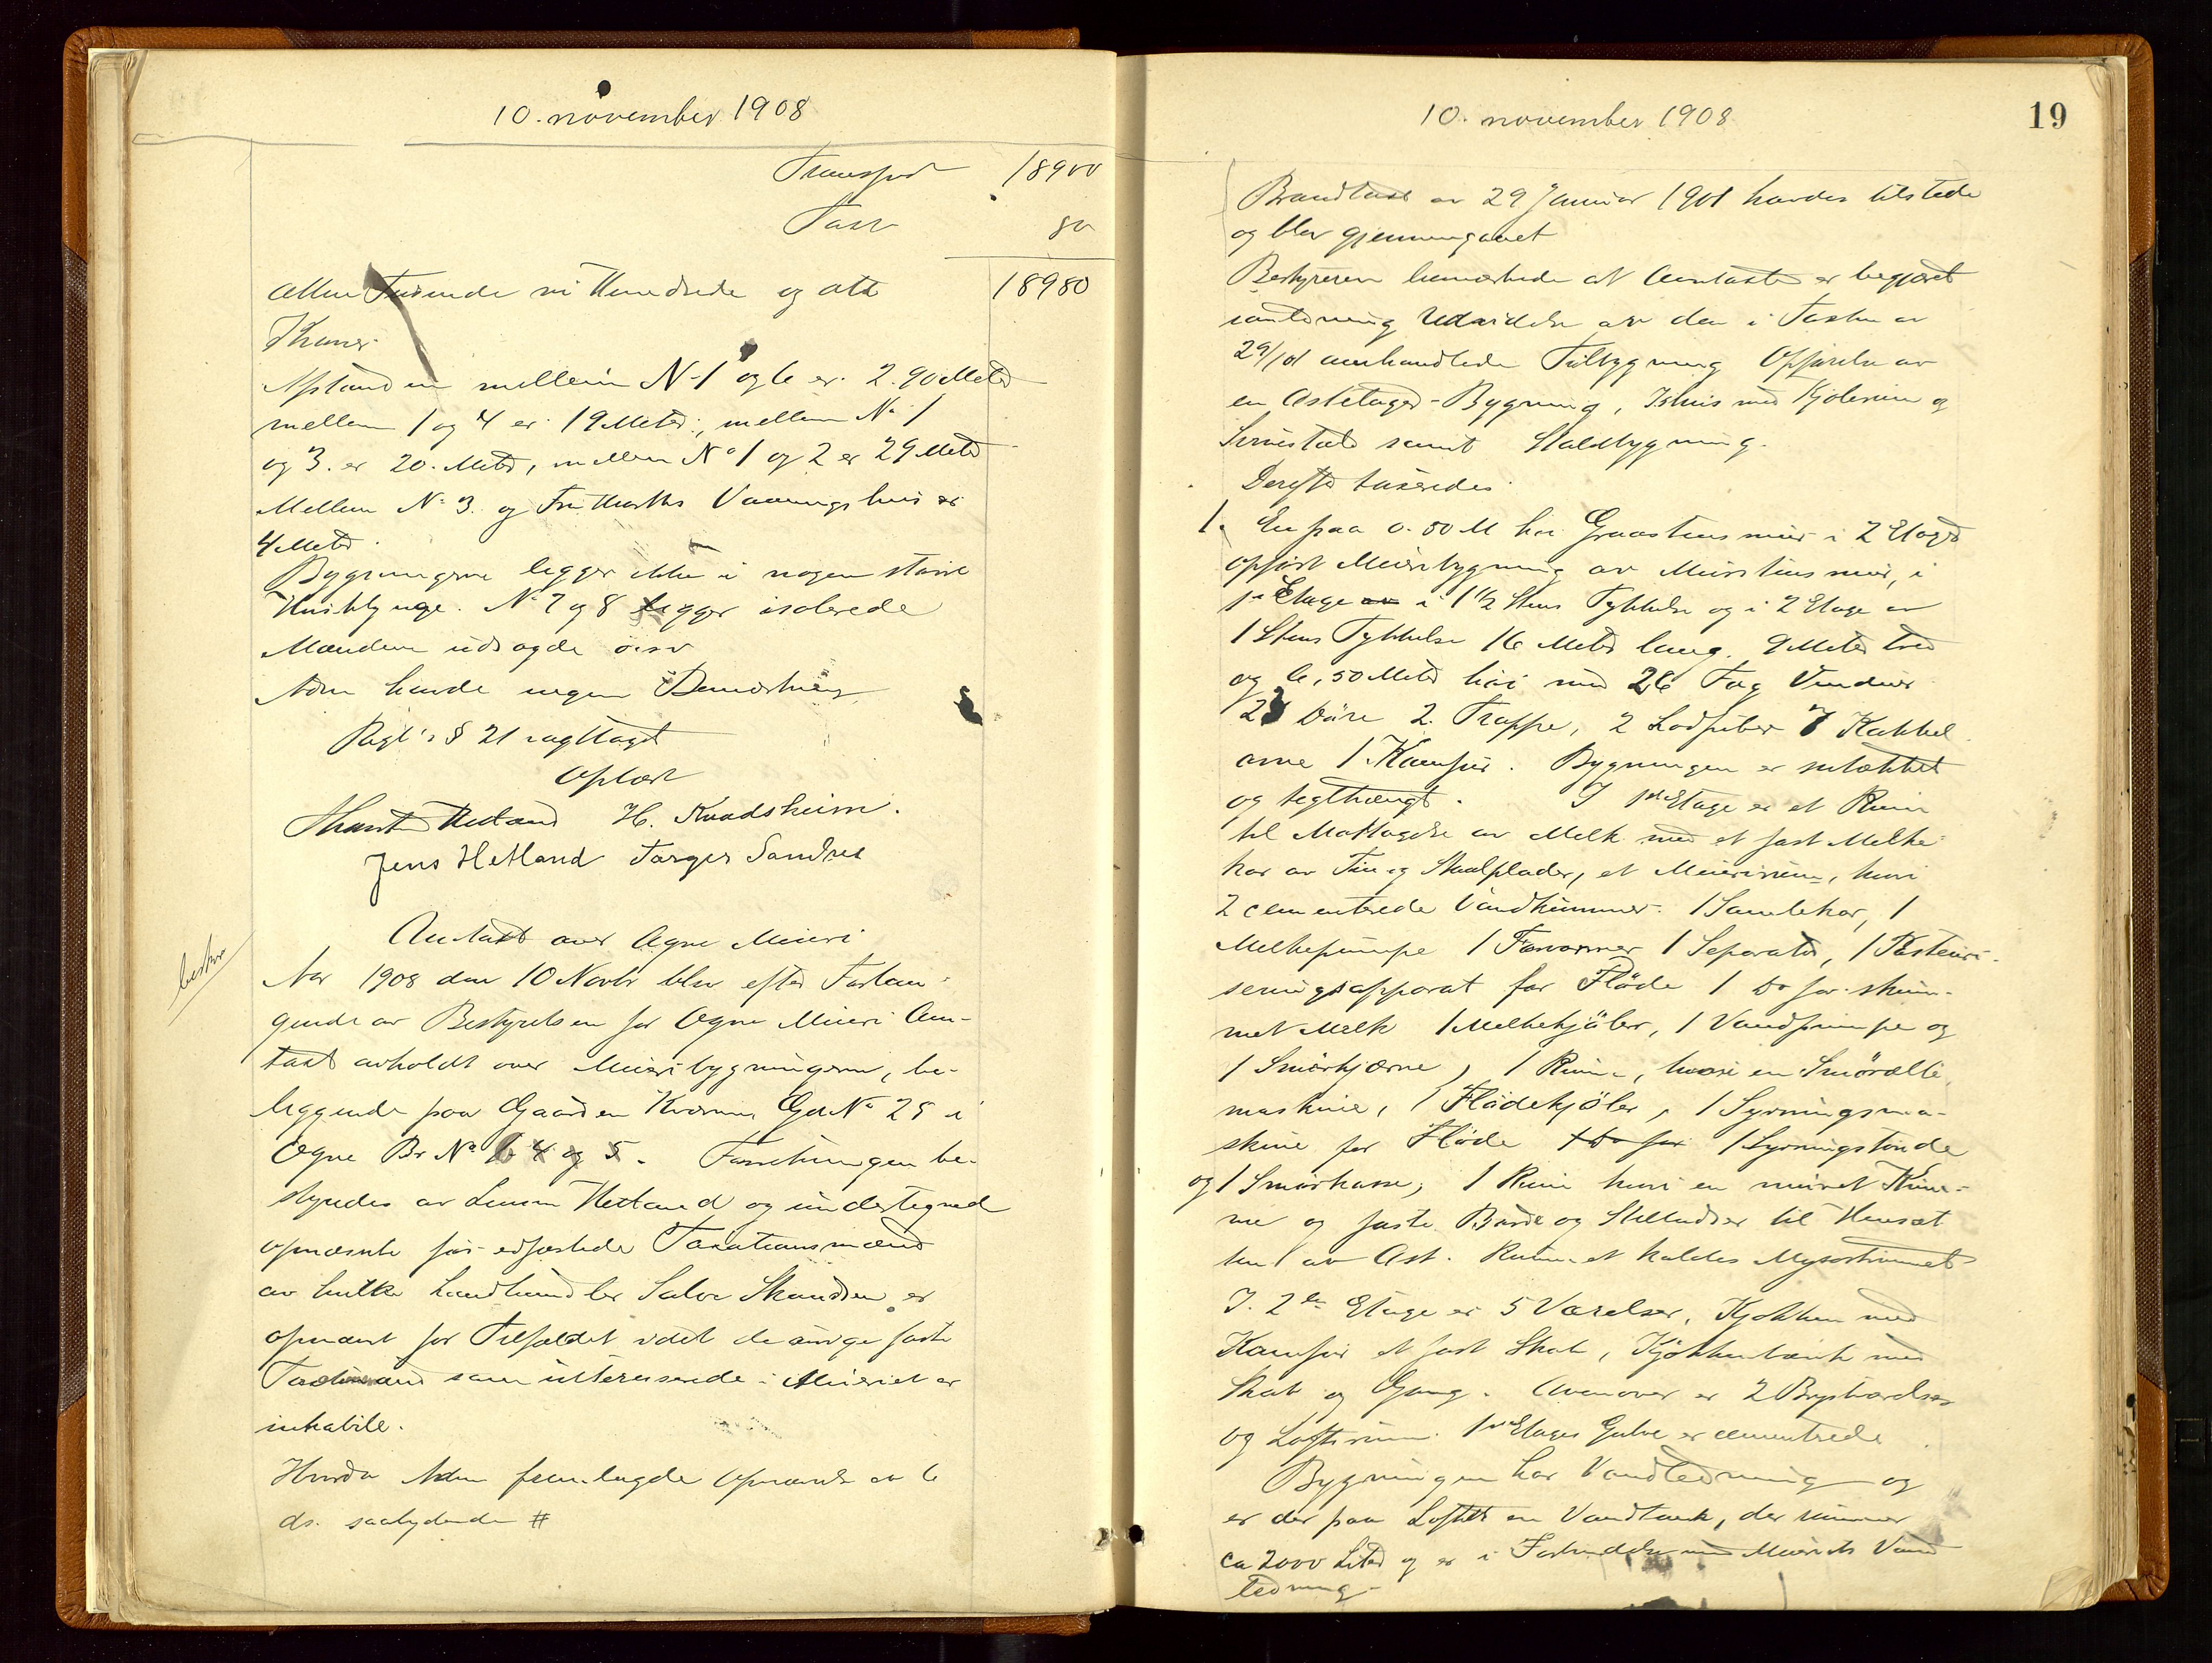 10. november 1908
Transport 18900
Taxt 80
Atten Tusende ni Hundrede og otti 18980
Kroner.
Afstanden mellem No 1 og 6 er 2.90 Meter
mellem 1 og 4 er 19 Meter, mellem No 1
og 3. er 20. Meter, mellem No 1 og 2 er 29 Meter
Mellem No 3. og Vaaningshus er
4 Meter.
Bygningerne legger ikke i nogen større
Husklynge. No 7 og 8 legger isolerede
Mændene udsagde
havde ingen Bemærkning
Regl's § 21 iagttaget
Oplæst
Hetland H. Kvadsheim.
Jens Hetland Torger Sandve
Omtaxt over Ogne Meieri
beskr
Aar 1908 den 10 Novbr blev efter Forlan-
gende av Bestyrelsen for Ogne Meieri Om-
taxt avholdt over Meieribygningerne, be-
liggende paa Gaarden Kvavn Gd No 29 i
Ogne Br No 4 og 5. Forretningen be-
styredes av Lensm Hetland og undertegned
opnævnte før edfæstede Taxationsmænd
av hvilke Landhandler Salve Skandsen er
opnævnt for Tilfældet idet de øvrige faste
Taxtmænd som interesserede i Meieriet er
inhabile.
fremlagde Opnævnelse av 6
ds. saalydende #
10. november 1908
19
Brandtaxt av 29 Januar 1901 havdes tilstede
og blev gjennemgaaet
Bestyreren bemærkede at Omtaxt er begjært
i anledning Udvidelse av den i Taxten av
29/1 01 omhandlede Tilbygning Opførelse av
en Ostelager-Bygning, Ishus med Kjølerum og
Svinestald samt Staldbygning.
Derefter taxeredes
1. En paa 0.50 M høi Graastensmur i 2 Etager
opført Meieribygning av Murstensmur, i
1ste Etage i 1 1/2 Stens Tykkelse og i 2 Etage av
1 Stens Tykkelse 16 Meter lang. 9 Meter bred
og 6,50 Meter høi med 26 Fag Vinduer
23 Døre 2. Trappe, 2 Lodpiber 7 Kakkel
ovne 1 Komfur. Bygningen er
og tegthængt. I 1ste Etage er et Rum
til Mottagelse av Melk med et fast Melke-
kar av Tin og Staalplader, et Meierirum, hvori
2 cementerede Vandkummer. 1 Samlekar, 1
Melkepumpe 1 Forvarmer 1 Separator, 1 Pasteuri-
seringsapparat for Fløde 1 Do for skum-
met Melk 1 Melkekjøler, 1 Vandpumpe og
1 Smørkjærne, 1 Rum, hvori en Smørælte
maskine, 1 Flødekjøler, 1 Syrningsma-
skine for Fløde 1 Do for 1 Syrningstønde
og 1 Smørkasse, 1 Rum hvori en muret Kum-
me og faste Borde og Stellader til Hensæt
ten av Ost. Rummet kaldes Mysostrummet
I. 2den Etage er 5 Værelser, Kjøkken med
Komfur et fast Skab, Kjøkkenbænk med
Skab og Gang. Ovenover er 2 Brystværelser
og Loftsrum. 1ste Etages Gulve er cementerede
Bygningen har Vandledning og
er der paa Loftet en Vandtank, der rummer
ca 2000 Liter og er i Forbindelse med Meieriets Vand
ledning-